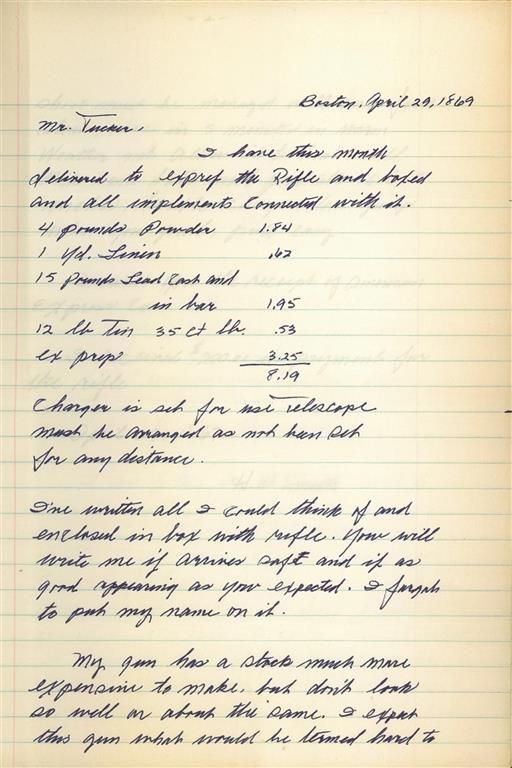 Boston, April 29, 1869
Mr. Tucker,
I have this month
delivered to expref the Rifle and boxed
and all implements Connected with it.
4 pounds Powder 1.84
1 Yd. Linen .62
15 pounds Lead Cast and
in bar 1.95
12 lb Tin 35 ct lb. .53
ex prep 3.25
8.19
Charger is set for use Telescope
must be arranged as not been set
for any distance.
I've written all I could think of and
enclosed in box with rifle. You will
write me if arrives saft and if as
good appearing as you expected. I forgot
to put my name on it.
My gun has a stock much more
expensive to make, but don't look
so well or about the same. I expect
this gun what would be termed hard to